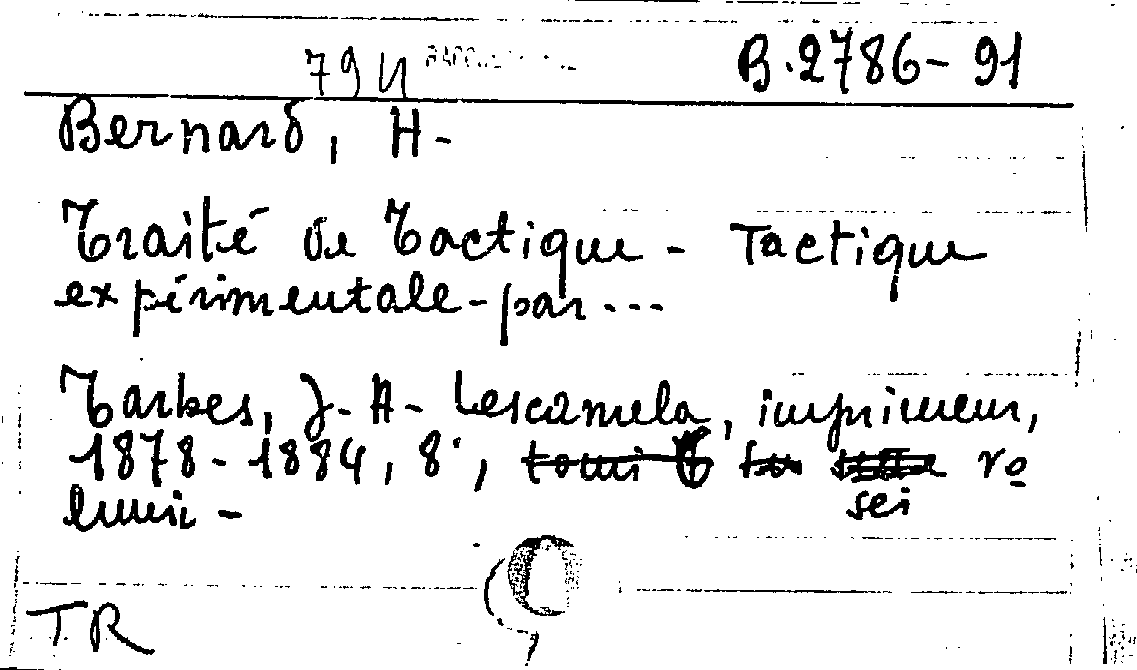 79 U B.2786-91
Bernard, H-
Traité de Tactique - Tactique
expérimentale - par ...
Tarbes, J-A- Lescamela, imprimeur,
1878-1884, 8°, tomi 6 vo
sei
lumi -
TR